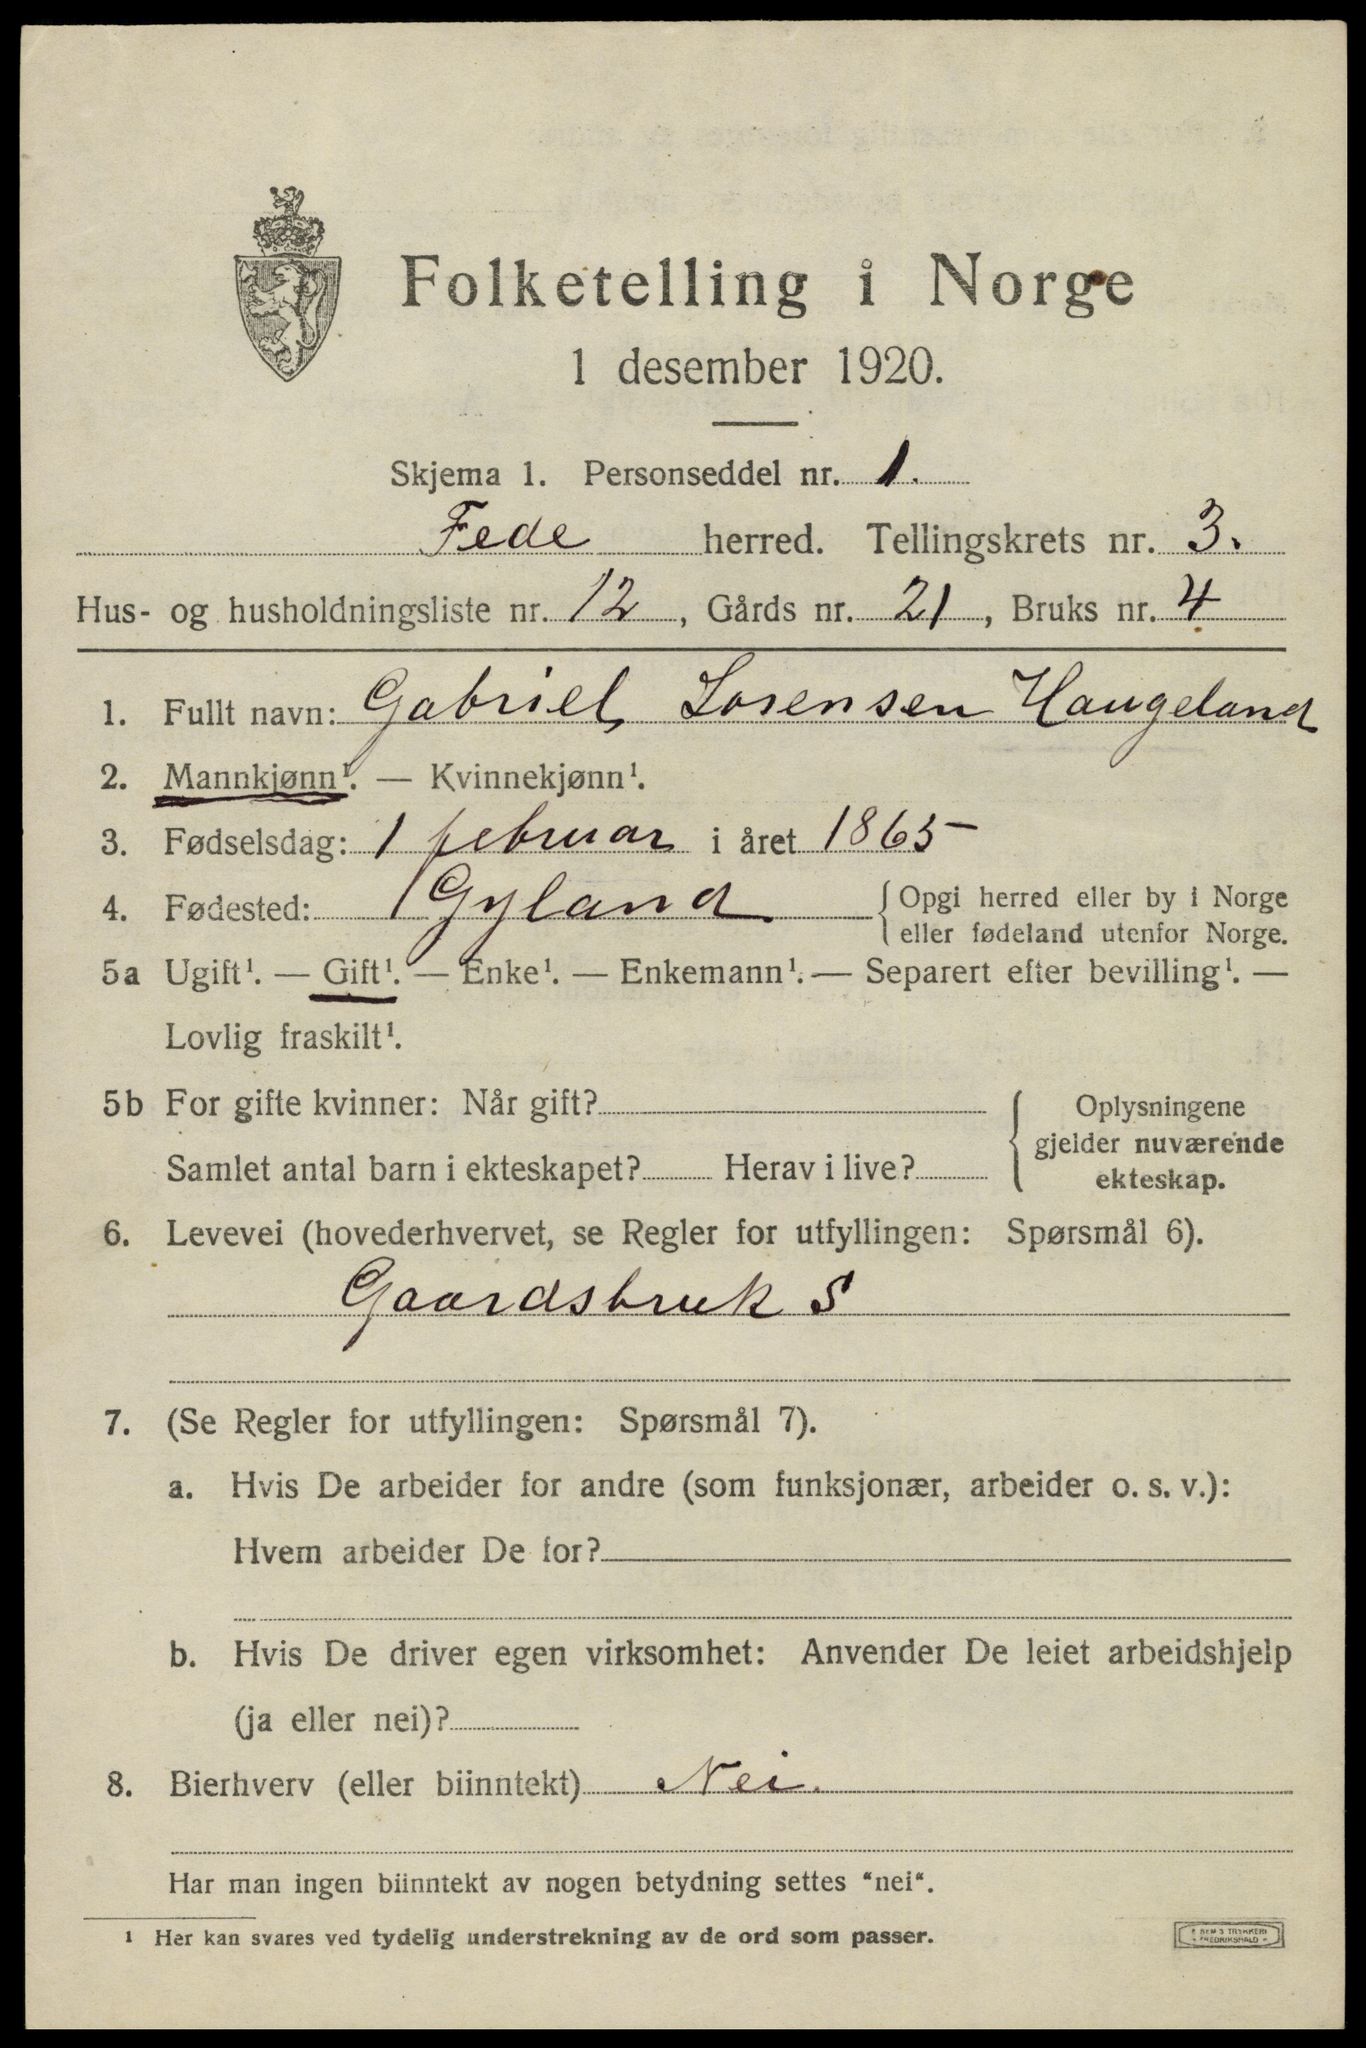 Folketelling i Norge
1 desember 1920.
Skjema 1. Personseddel nr. 1.
Fede herred. Tellingskrets nr. 3.
Hus- og husholdningsliste nr. 12, Gårds nr. 21, Bruks nr. 4
1. Fullt navn: Gabriel Lorensen Haugeland
2. Mannkjønn¹. — Kvinnekjønn¹.
3. Fødselsdag: 1 februar i året 1865
4. Fødested: Gyland {Opgi herred eller by i Norge
eller fødeland utenfor Norge.
5a Ugift¹. — Gift¹. — Enke¹. — Enkemann¹. — Separert efter bevilling¹. —
Lovlig fraskilt¹.
5b For gifte kvinner: Når gift?
Samlet antal barn i ekteskapet? Herav i live?
{Oplysningene
gjelder nuværende
ekteskap.
6. Levevei (hovederhvervet, se Regler for utfyllingen: Spørsmål 6).
Gaardsbruk S
7. (Se Regler for utfyllingen: Spørsmål 7).
a. Hvis De arbeider for andre (som funksjonær, arbeider o. s. v.):
Hvem arbeider De for?
b. Hvis De driver egen virksomhet: Anvender De leiet arbeidshjelp
(ja eller nei)?
8. Bierhverv (eller biinntekt) Nei.
Har man ingen biinntekt av nogen betydning settes "nei".
¹ Her kan svares ved tydelig understrekning av de ord som passer.
TRYKKERI
FREDRIKSHALD